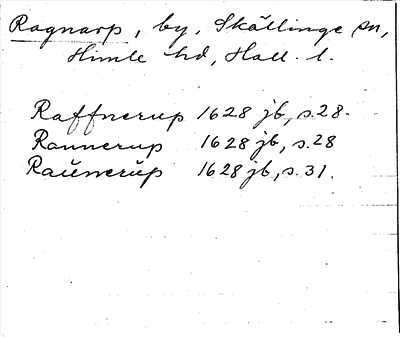 Ragnarp, by, Skällinge sn,
Himle hd, Hall. l.
Raffnerup 1628 jb, s. 28.
Rannerup 1628 jb, s. 28
Raŭnerŭp 1628 jb, s. 31.